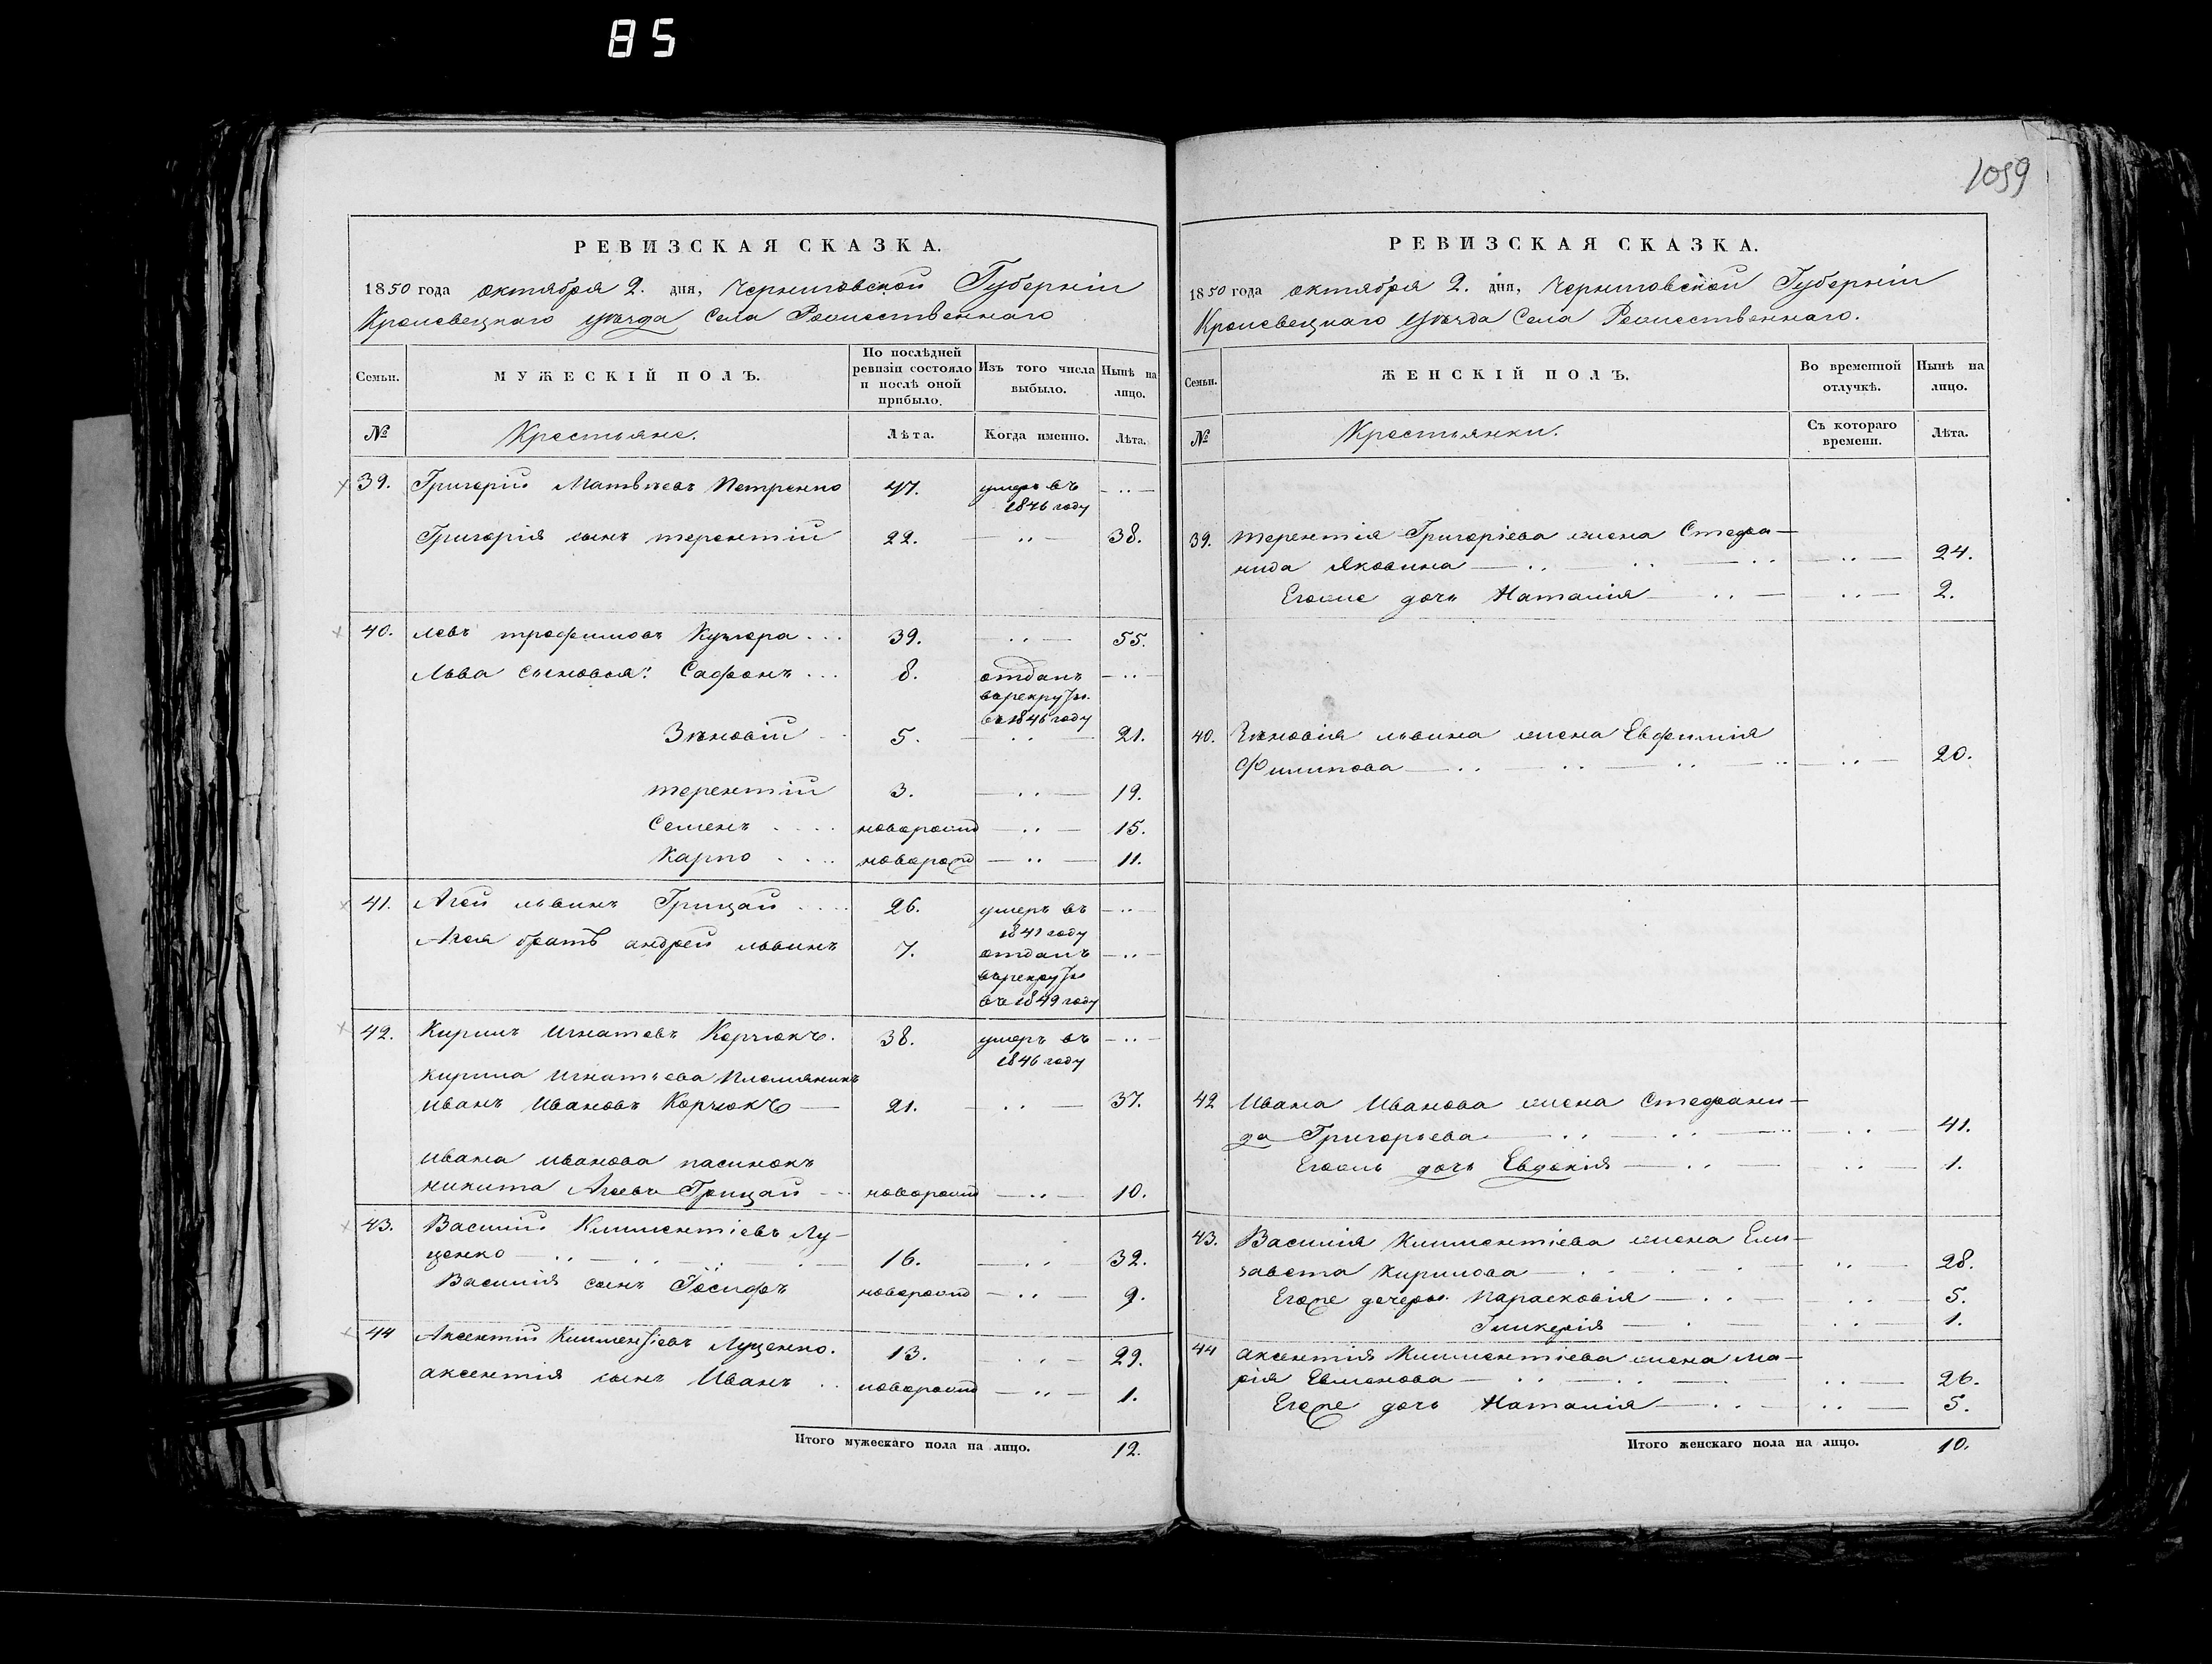 85
1059
РЕВИЗСКАЯ СКАЗКА.
1850 года октября 2. дня, Черниговской Губерніи
Кролевецкаго уѣзда Села Рожественнаго
Семьи.
МУЖЕСКІЙ ПОЛЪ.
По послѣдней ревизіи состояло и послѣ оной прибыло.
Изъ того числа выбыло.
Нынѣ на лицо.
№
Крестьяне.
Лѣта.
Когда именно.
Лѣта.
39. Григорій Матвѣевъ Петренко 47. умеръ въ 1846 году
Григорія сынъ терентій 22. 38.
40. левъ трофимовъ 39. 55.
Льва сыновья: Сафонъ 8. отданъ врекруты въ 1846 году
Зѣновій 5. 21.
терентій 3. 19.
Семенъ новорожд 15.
Карпо новорожд 11.
41. Агей львинъ Грицай 26. умеръ въ 1841 году
Агея братъ андрей львинъ 7. отданъ врекруты въ 1849 году
42. Кирилъ игнатовъ Корчокъ. 38. умеръ въ 1846 году
кирила игнатьева племянникъ
иванъ ивановъ Корчокъ 21. 37.
ивана иванова пасинокъ
никита Агеевъ Грицай новорожд 10.
43. Василій Климентіевъ Лу-
ценко 16. 32.
Василія сынъ Іосифъ новорожд 9.
44 Аксентій Климентіевъ Луценко. 13. 29.
аксентія сынъ Иванъ новорожд 1.
Итого мужескаго пола на лицо. 12.
РЕВИЗСКАЯ СКАЗКА.
1850 года октября 2. дня, Черниговской Губерніи
Кролевецкаго уѣзда Села Рожественнаго.
Семьи.
ЖЕНСКІЙ ПОЛЪ.
Во временной отлучкѣ.
Нынѣ на лицо.
№
Крестьянки.
Съ котораго времени.
Лѣта.
39. терентія Григоріева жена Стефа-
нида Яковина 24.
Егоже дочь Наталія 2.
40. Зѣновія львина жена Евфимія
Филипова 20.
42 Ивана Иванова жена Стефани-
да Григорьева 41.
Егожъ дочь Евдокія 1.
43. Василія Климентіева жена Ели-
завета Кирилова 28.
Егоже дочеры Парасковія 5.
Гликерія 1.
44 аксентія Климентіева жена Ма-
рія Евменова 26.
Егоже дочь Наталія 5.
Итого женскаго пола на лицо. 10.